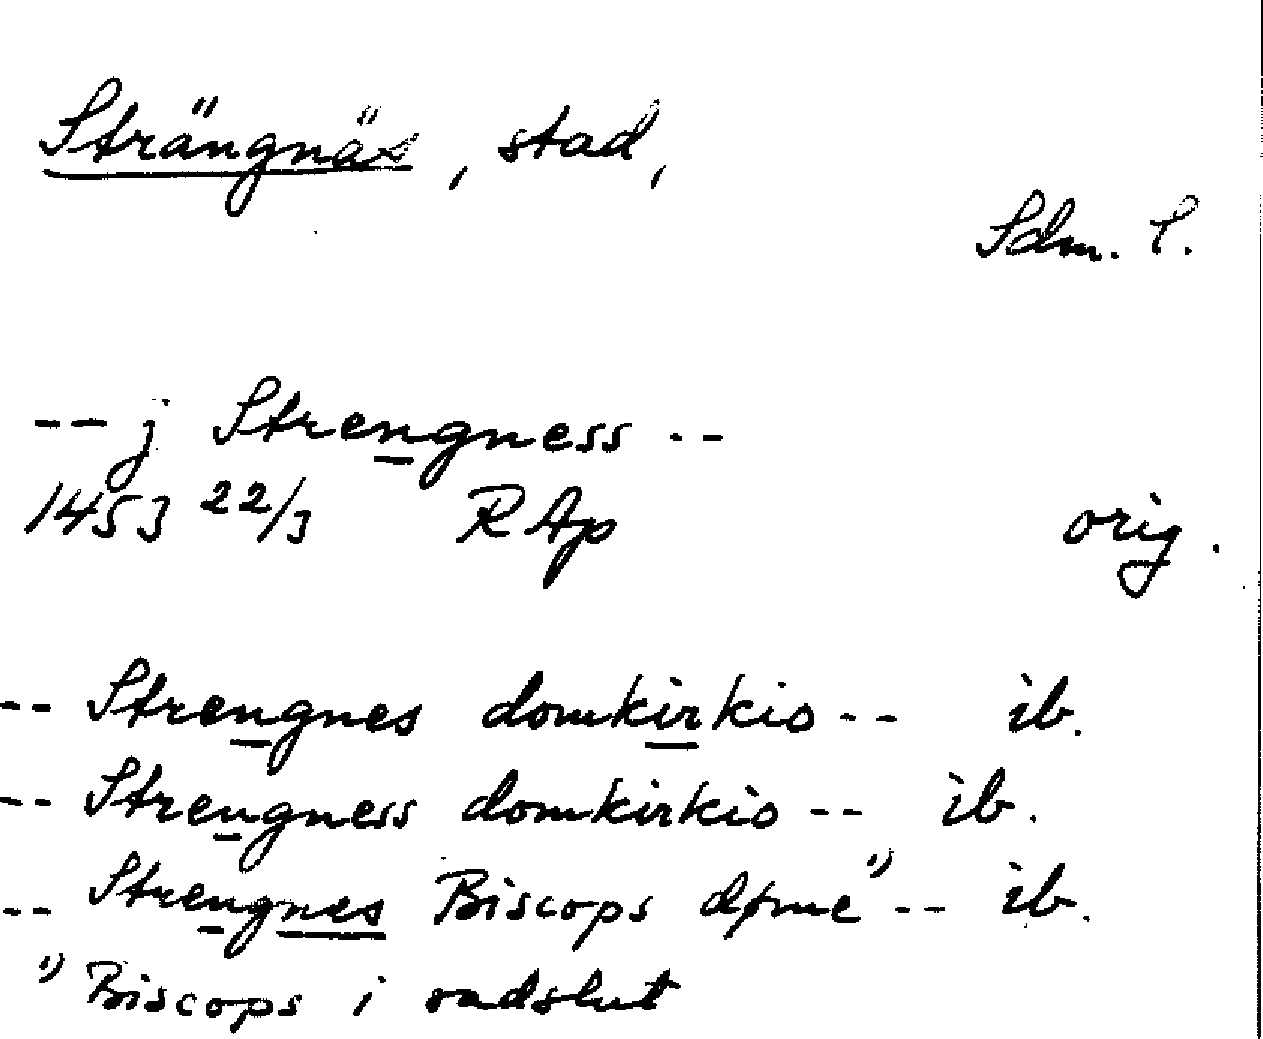 Strängnäs, stad,
Sdm. l.
-- j Strengness --
1453 22/3 RAp orig.
-- Strengnes domkirkio -- ib.
-- Strengness domkirkio -- ib.
-- Strengnes Biscops døme 1) -- ib.
1) Biscops i radslut